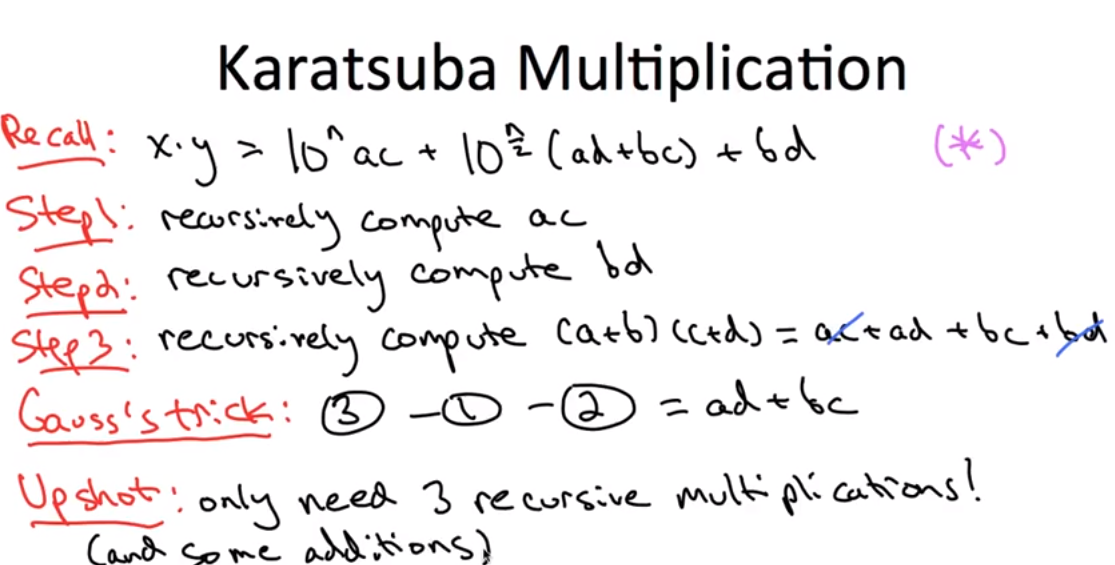 Karatsuba Multiplication
Recall: x·y = 10ⁿac + 10^(n/2)(ad+bc) + bd (*)
Step1: recursively compute ac
Step2: recursively compute bd
Step3: recursively compute (a+b)(c+d) = ac+ad+bc+bd
Gauss's trick: ③ - ① - ② = ad+bc
Upshot: only need 3 recursive multiplications!
(and some additions)